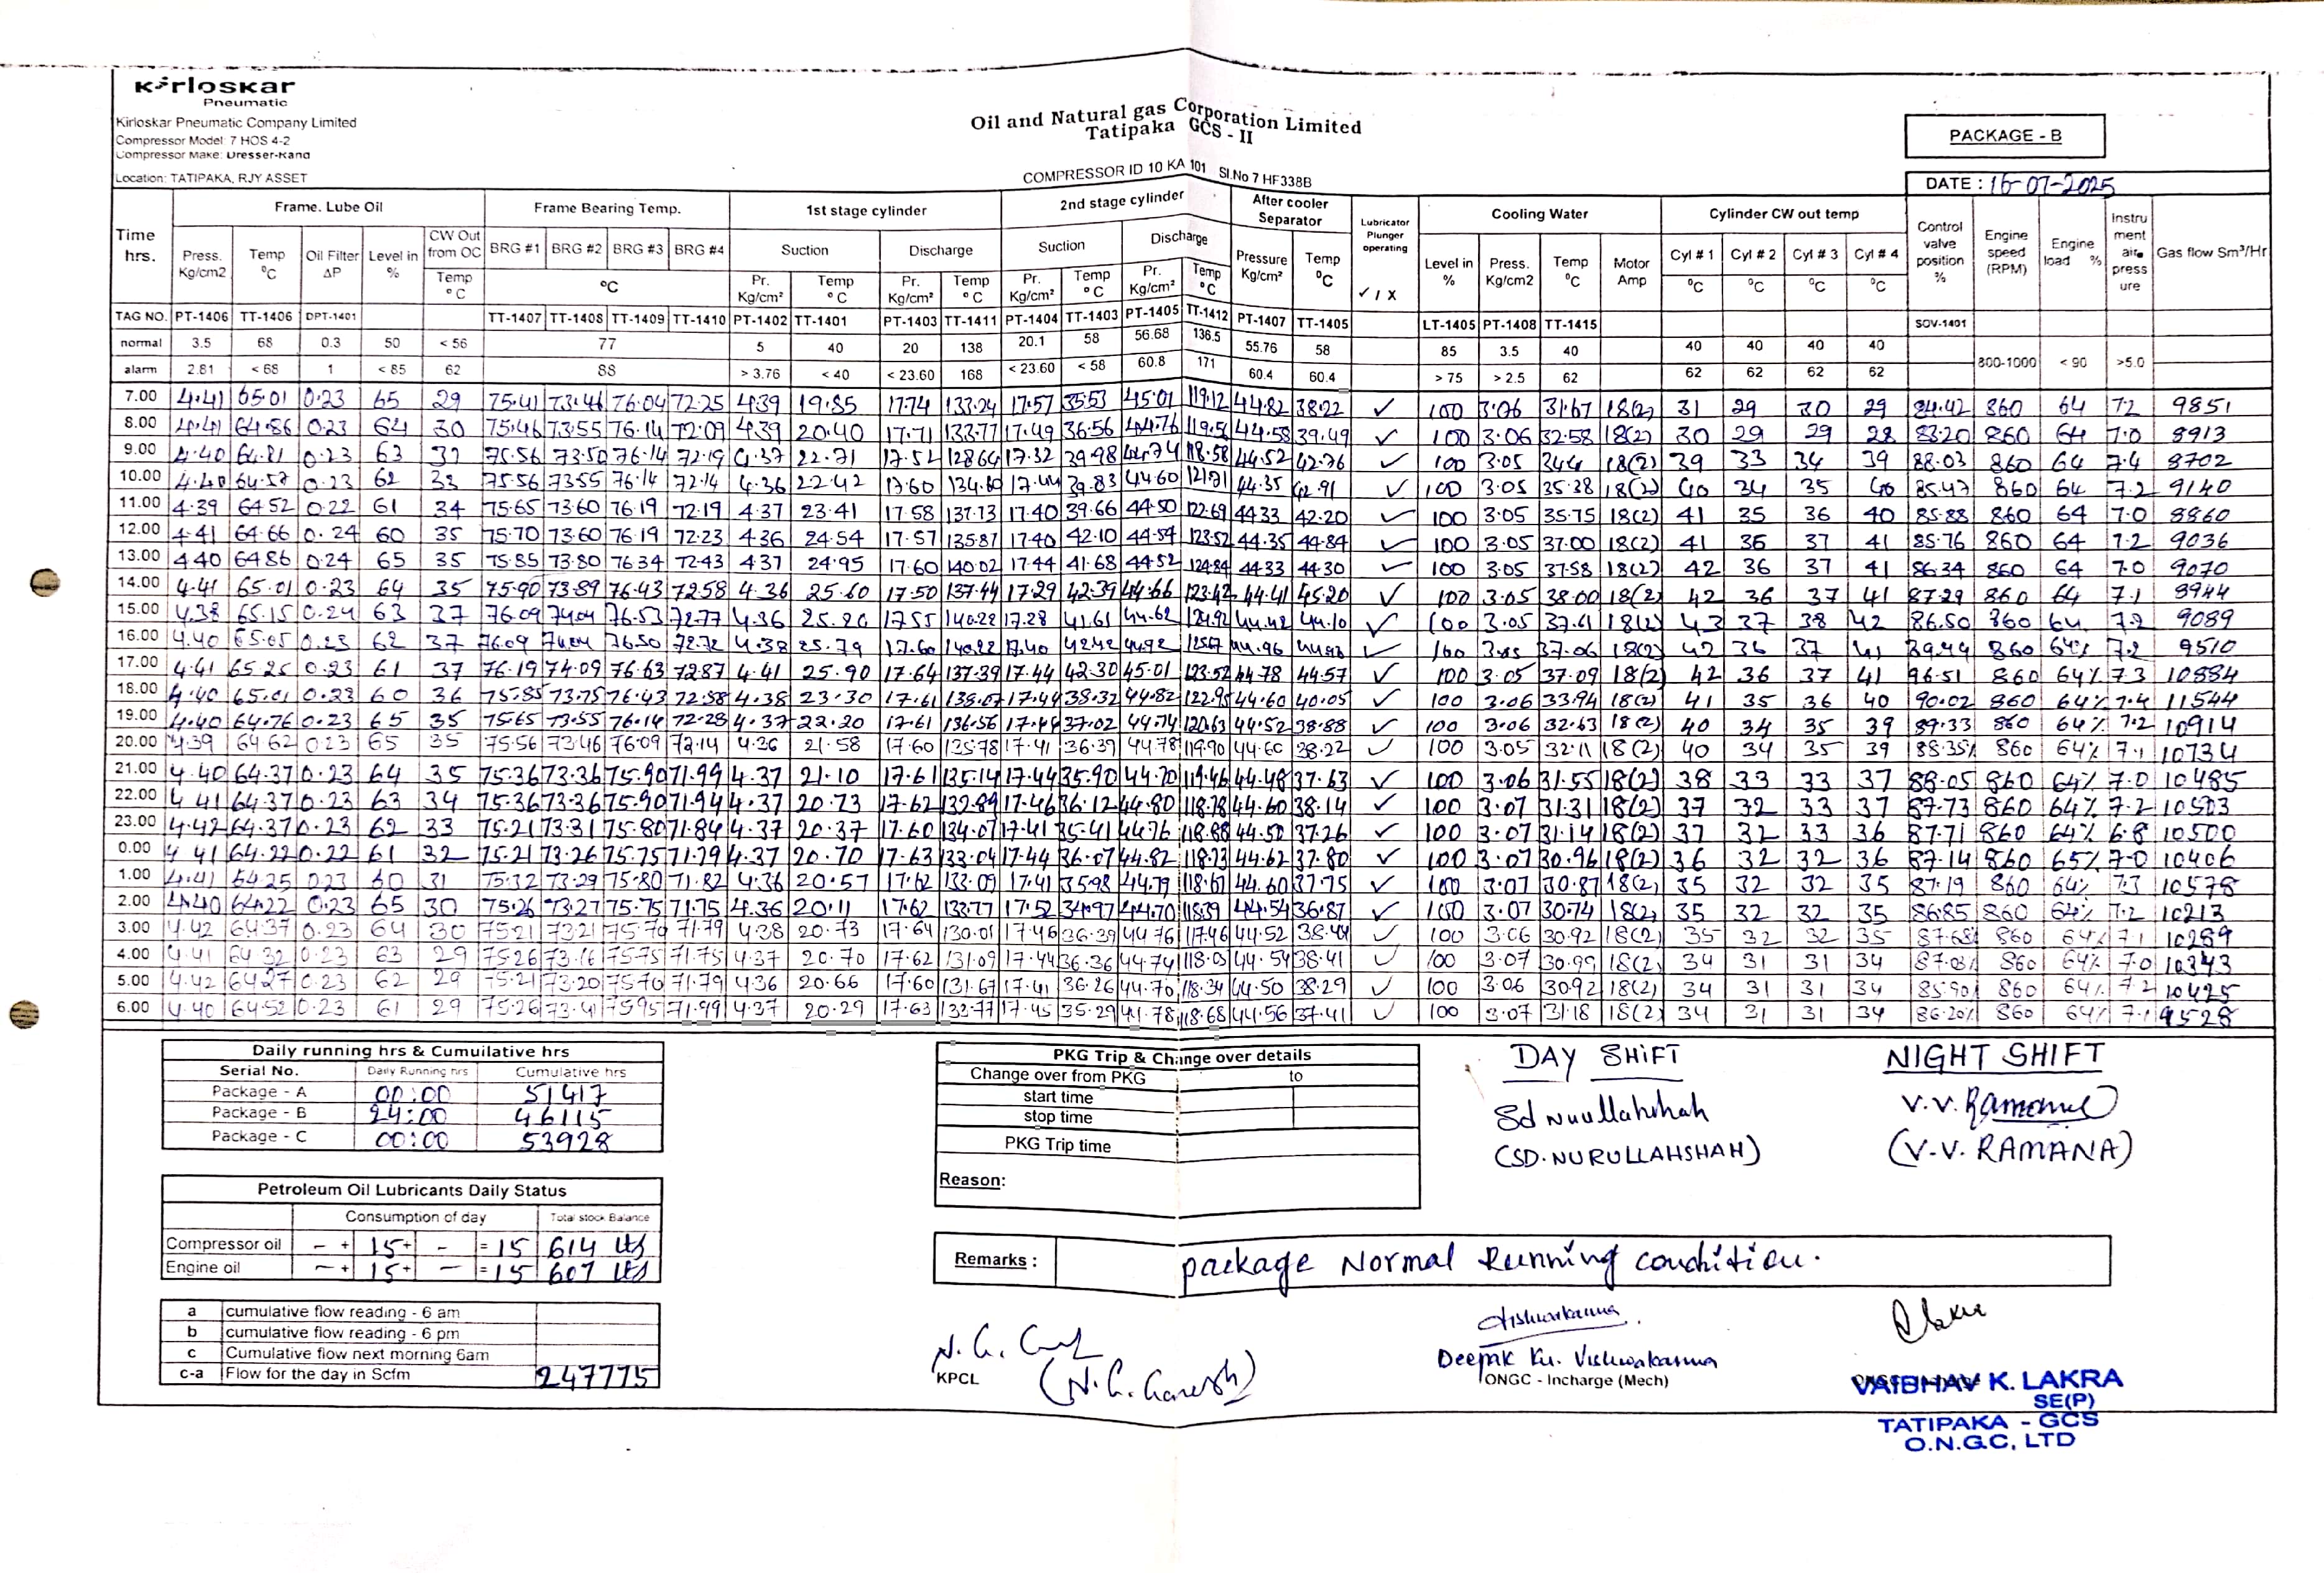 Kirloskar
Pneumatic
Kirloskar Pneumatic Company Limited
Compressor Model: 7 HOS 4-2
Compressor Make: Dresser-Rand
Location: TATIPAKA, RJY ASSET
Oil and Natural gas Corporation Limited
Tatipaka GCS - II
COMPRESSOR ID 10 KA 101 Sl.No 7 HF338B
PACKAGE - B
DATE : 16-07-2025
Time hrs. Frame. Lube Oil Frame Bearing Temp. 1st stage cylinder 2nd stage cylinder After cooler Separator Lubricator Plunger operating ✓ / X Cooling Water Cylinder CW out temp Control valve position % Engine speed (RPM) Engine load % Instru ment air press ure Gas flow Sm³/Hr
Press. Kg/cm2 Temp ºC Oil Filter ΔP Level in % CW Out from OC Temp º C BRG #1 BRG #2 BRG #3 BRG #4 ºC Suction Discharge Suction Discharge Pressure Kg/cm² Temp ºC Level in % Press. Kg/cm2 Temp ºC Motor Amp Cyl # 1 Cyl # 2 Cyl # 3 Cyl # 4
Pr. Kg/cm² Temp º C Pr. Kg/cm² Temp º C Pr. Kg/cm² Temp º C Pr. Kg/cm² Temp º C ºC ºC ºC ºC
TAG NO. PT-1406 TT-1406 DPT-1401 TT-1407 TT-1408 TT-1409 TT-1410 PT-1402 TT-1401 PT-1403 TT-1411 PT-1404 TT-1403 PT-1405 TT-1412 PT-1407 TT-1405 LT-1405 PT-1408 TT-1415 SOV-1401
normal 3.5 68 0.3 50 < 56 77 5 40 20 138 20.1 58 56.68 136.5 55.76 58 85 3.5 40 40 40 40 40
alarm 2.81 < 68 1 < 85 62 88 > 3.76 < 40 < 23.60 168 < 23.60 < 58 60.8 171 60.4 60.4 > 75 > 2.5 62 62 62 62 62 800-1000 < 90 >5.0
7.00 4.41 65.01 0.23 65 29 75.41 73.46 76.04 72.25 4.39 19.85 17.74 133.24 17.57 35.53 45.01 119.12 44.82 38.22 ✓ 100 3.06 31.67 18(2) 31 29 30 29 84.42 860 64 7.2 9851
8.00 4.41 64.86 0.23 64 30 75.46 73.55 76.14 72.09 4.39 20.40 17.71 133.77 17.49 36.56 44.76 44.58 39.49 ✓ 100 3.06 32.58 18(2) 30 29 29 28 83.20 860 64 7.0 8913
9.00 4.40 64.81 0.23 63 32 75.56 73.50 76.14 72.19 4.37 22.71 17.52 128.64 17.32 39.98 44.74 118.58 44.52 42.76 ✓ 100 3.05 34.4 18(2) 39 33 34 39 88.03 860 64 7.4 8702
10.00 4.40 64.57 0.23 62 33 75.56 73.55 76.14 72.14 4.36 22.42 17.60 134.80 17.44 39.83 44.60 121.91 44.35 42.91 ✓ 100 3.05 35.38 18(2) 40 34 35 40 85.47 860 64 7.2 9140
11.00 4.39 64 52 0.22 61 34 75.65 73.60 76.19 72.19 4.37 23.41 17.58 137.13 17.40 39.66 44.50 122.69 44 33 42.20 ✓ 100 3.05 35.75 18(2) 41 35 36 40 85.88 860 64 7.0 8860
12.00 4.41 64.66 0.24 60 35 75.70 73.60 76.19 72.23 4.36 24.54 17.57 135.87 17.40 42.10 44.54 123.52 44.35 44.84 ✓ 100 3.05 37.00 18(2) 41 36 37 41 85.76 860 64 7.2 9036
13.00 4.40 64.86 0.24 65 35 75.85 73.80 76.34 72.43 4.37 24.95 17.60 140.02 17.44 41.68 44.52 124.84 44.33 44.30 ✓ 100 3.05 37.58 18(2) 42 36 37 41 86.34 860 64 7.0 9070
14.00 4.41 65.01 0.23 64 35 75.90 73.89 76.43 72.58 4.36 25.60 17.50 137.44 17.29 42.39 44.66 123.42 44.41 45.20 ✓ 100 3.05 38.00 18(2) 42 36 37 41 87.29 860 64 7.1 8944
15.00 4.38 65.15 0.24 63 37 76.09 74.04 76.53 72.77 4.36 25.26 17.55 140.28 17.28 41.61 44.62 124.92 44.42 44.10 ✓ 100 3.05 37.61 18(2) 43 37 38 42 86.50 860 64 7.2 9089
16.00 4.40 65.05 0.23 62 37 76.09 74.04 76.50 72.72 4.38 25.79 17.60 140.28 17.40 42.42 44.92 44.96 ✓ 100 3.05 37.06 18(2) 42 36 37 41 860 64% 7.2 9510
17.00 4.41 65.25 0.23 61 37 76.19 74.09 76.63 72.87 4.41 25.90 17.64 137.39 17.44 42.30 45.01 123.52 44.78 44.57 ✓ 100 3.05 37.09 18(2) 42 36 37 41 96.51 860 64% 7.3 10884
18.00 4.40 65.01 0.23 60 36 75.85 73.75 76.43 72.58 4.38 23.30 17.61 138.07 17.44 38.32 44.82 122.95 44.60 40.05 ✓ 100 3.06 33.94 18(2) 41 35 36 40 90.02 860 64% 7.4 11544
19.00 4.40 64.76 0.23 65 35 75.65 73.55 76.14 72.28 4.37 22.20 17.61 136.56 17.44 37.02 44.74 120.63 44.52 38.88 ✓ 100 3.06 32.63 18(2) 40 34 35 39 89.33 860 64% 7.2 10914
20.00 4.39 64 62 0.23 65 35 75.56 73.46 76.09 72.14 4.36 21.58 17.60 135.78 17.41 36.39 44.78 119.90 44.60 38.22 ✓ 100 3.05 32.11 18(2) 40 34 35 39 88.35% 860 64% 7.1 10734
21.00 4.40 64.37 0.23 64 35 75.36 73.36 75.90 71.99 4.37 21.10 17.61 135.14 17.44 35.90 44.70 119.46 44.48 37.63 ✓ 100 3.06 31.55 18(2) 38 33 33 37 88.05 860 64% 7.0 10485
22.00 4 41 64.37 0.23 63 34 75.36 73.36 75.90 71.94 4.37 20.73 17.62 132.89 17.46 36.12 44.80 118.78 44.60 38.14 ✓ 100 3.07 31.31 18(2) 37 32 33 37 87.73 860 64% 7.2 10503
23.00 4.42 64.37 0.23 62 33 75.21 73.31 75.80 71.84 4.37 20.37 17.60 134.07 17.41 35.41 44.76 118.88 44.50 37.26 ✓ 100 3.07 31.14 18(2) 37 32 33 36 87.71 860 64% 6.8 10500
0.00 4 41 64.22 0.22 61 32 75.21 73.26 75.75 71.79 4.37 20.70 17.63 133.04 17.44 36.07 44.82 118.73 44.62 37.80 ✓ 100 3.07 30.96 18(2) 36 32 32 36 87.14 860 65% 7.0 10406
1.00 4.41 64.25 0.23 60 31 75.32 73.29 75.80 71.82 4.36 20.57 17.62 133.09 17.41 35.98 44.79 118.67 44.60 37.75 ✓ 100 3.07 30.87 18(2) 35 32 32 35 87.19 860 64% 7.3 10578
2.00 4.40 64.22 0.23 65 30 75.26 73.27 75.75 71.75 4.36 20.11 17.62 133.77 17.52 34.97 44.70 118.39 44.54 36.87 ✓ 100 3.07 30.74 18(2) 35 32 32 35 86.85 860 64% 7.2 10213
3.00 4.42 64.37 0.23 64 30 75.21 73.21 75.70 71.79 4.38 20.73 17.64 130.01 17.46 36.39 44.76 117.46 44.52 38.44 ✓ 100 3.06 30.92 18(2) 35 32 32 35 87.68% 860 64% 7.1 10289
4.00 4.41 64 32 0.23 63 29 75.26 73.16 75.75 71.75 4.37 20.70 17.62 131.09 17.44 36.36 44.74 118.05 44.54 38.41 ✓ 100 3.07 30.99 18(2) 34 31 31 34 87.03% 860 64% 7.0 10343
5.00 4.42 64.27 0.23 62 29 75.21 73.20 75.70 71.79 4.36 20.66 17.60 131.67 17.41 36.26 44.70 118.34 44.50 38.29 ✓ 100 3.06 30.92 18(2) 34 31 31 34 85.90% 860 64% 7.2 10425
6.00 4.40 64.52 0.23 61 29 75.26 73.41 75.95 71.99 4.37 20.29 17.63 132.77 17.45 35.29 44.78 118.68 44.56 37.41 ✓ 100 3.07 31.18 18(2) 34 31 31 34 86.20% 860 64% 7.1 9528
Daily running hrs & Cumuilative hrs
Serial No. Daily Running hrs Cumulative hrs
Package - A 00:00 51417
Package - B 24:00 46115
Package - C 00:00 53928
PKG Trip & Change over details
Change over from PKG to
start time
stop time
PKG Trip time
Reason:
DAY SHIFT
Sd Nurullahshah
(SD.NURULLAHSHAH)
NIGHT SHIFT
V.V.Ramana
(V.V. RAMANA)
Petroleum Oil Lubricants Daily Status
Consumption of day Total stock Balance
Compressor oil - + 15 + - = 15 614 lts
Engine oil - + 15 + - = 15 607 lts
Remarks : package Normal Running condition.
a cumulative flow reading - 6 am
b cumulative flow reading - 6 pm
c Cumulative flow next morning 6am
c-a Flow for the day in Scfm 247775
KPCL
(N.G. Ganesh)
Deepak Ku. Vishwakarma
ONGC - Incharge (Mech)
VAIBHAV K. LAKRA
SE(P)
TATIPAKA - GCS
O.N.G.C, LTD